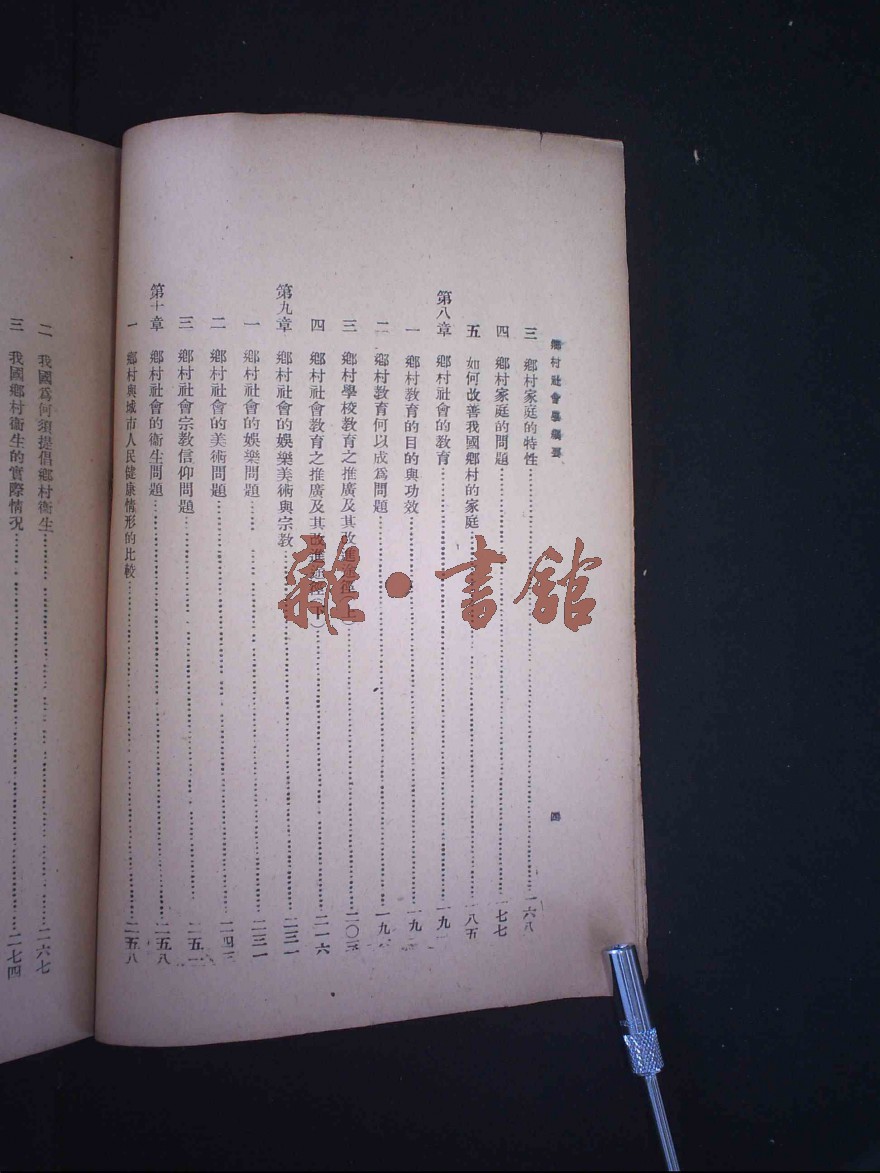 鄉村社會學綱要
四
三 鄉村家庭的特性 一六八
四 鄉村家庭的問題 一七七
五 如何改善我國鄉村的家庭 一八五
第八章 鄉村社會的教育 一九
一 鄉村教育的目的與功效 一九
二 鄉村教育何以成爲問題 一九
三 鄉村學校教育之推廣及其改進途徑(上) 二〇三
四 鄉村社會教育之推廣及其改進途徑(下) 二一六
第九章 鄉村社會的娛樂美術與宗教 二三一
一 鄉村社會的娛樂問題 二三一
二 鄉村社會的美術問題 二四三
三 鄉村社會宗教信仰問題 二五
第十章 鄉村社會的衞生問題 二五八
一 鄉村與城市人民健康情形的比較 二五八
二 我國爲何須提倡鄉村衞生 二六七
三 我國鄉村衞生的實際情况 二七四
雜·書館